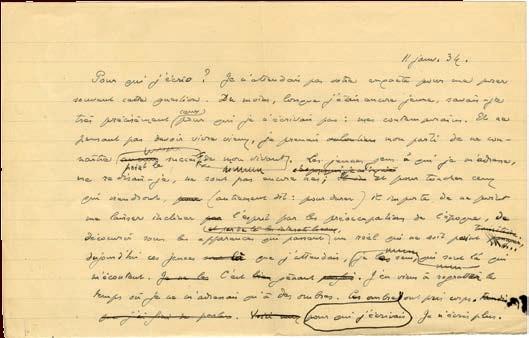 11 janv. 34.
Pour qui j'écris ? Je n'attendais pas votre enquête pour me poser
souvent cette question. Du moins, lorsque j'étais encore jeune, savais-je
très précisément ceux pour qui je n'écrivais pas : mes contemporains. Et ne
pensant pas devoir vivre vieux, je prenais mon parti de ne con-
naître point le succès de mon vivant. Les jeunes gens à qui je m'adresse,
me redisais-je, ne sont pas encore nés ; et pour toucher ceux
qui viendront, (autrement dit : pour durer) il importe de ne point
me laisser incliner l'esprit par les préoccupations de l'époque, de
découvrir sous les apparences qui passent, un réel qui ne soit
aujourd'hui ces jeunes que j'attendais, qui sont là qui
m'écoutent. C'est gênant. J'en viens à regretter le
temps où je ne m'adressais qu'à des ombres. Les ombres ont pris corps.
pour qui j'écrivais Je n'écris plus.